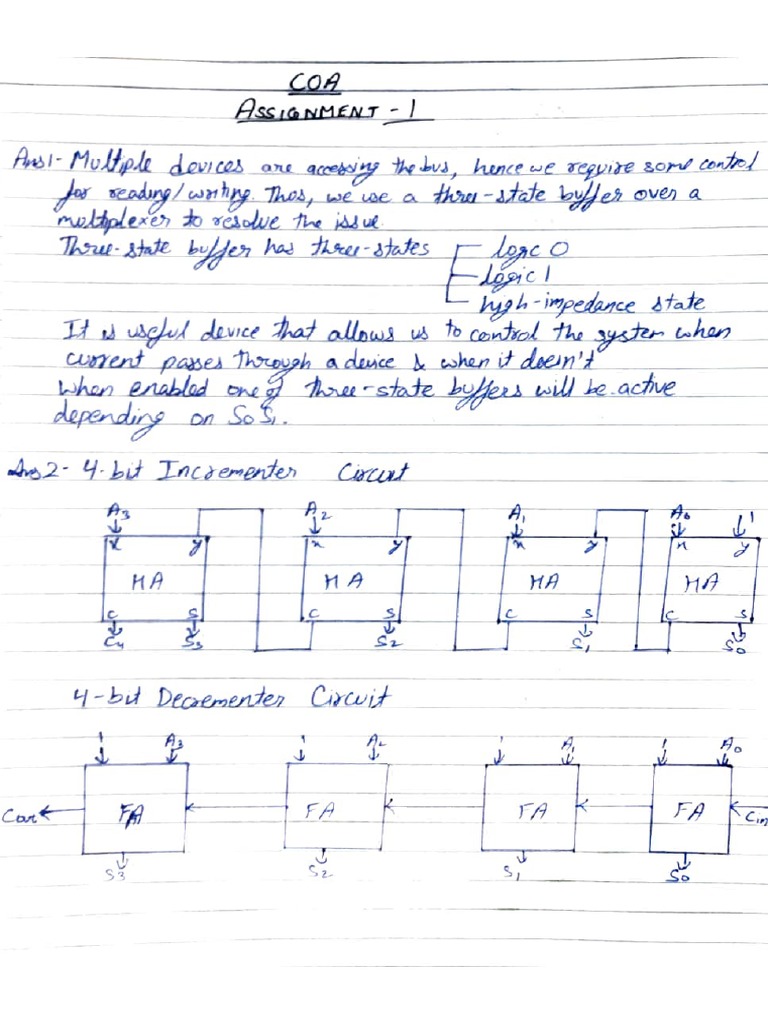 COA
ASSIGNMENT - 1
Ans1- Multiple devices are accessing the bus, hence we require some control
for reading/writing. Thus, we use a three-state buffer over a
multiplexer to resolve the issue.
Three-state buffer has three-states logic 0
logic 1
high-impedance state
It is useful device that allows us to control the system when
current passes through a device & when it doesn't
When enabled one of three-state buffers will be active
depending on S0 S1.
Ans2- 4-bit Incrementer Circuit
A3 A2 A1 A0 1
x y x y x y x y
HA HA HA HA
C S C S C S C S
C4 S3 S2 S1 S0
4-bit Decrementer Circuit
1 A3 1 A2 1 A1 1 A0
Cout FA FA FA FA Cin
S3 S2 S1 S0